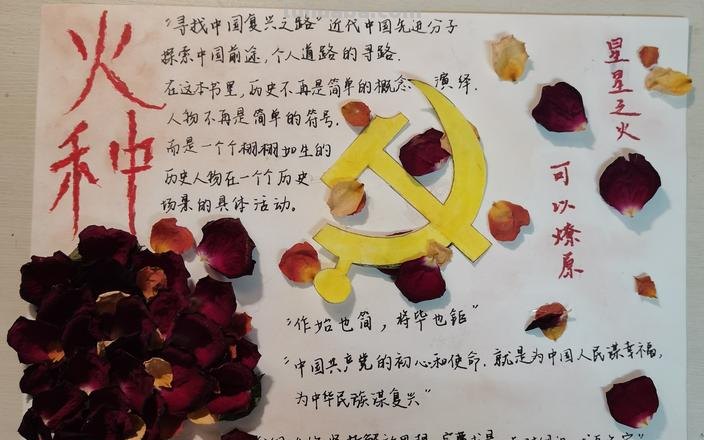 火种
"寻找中国复兴之路"近代中国先进分子
探索中国前途,个人道路的寻路.
在这本书里,历史不再是简单的概念、演绎.
人物不再是简单的符号.
而是一个个栩栩如生的
历史人物在一个个历史
场景的具体活动。
星星之火
可以燎原
"作始也简,将毕也钜"
"中国共产党的初心和使命.就是为中国人民谋幸福,
为中华民族谋复兴"